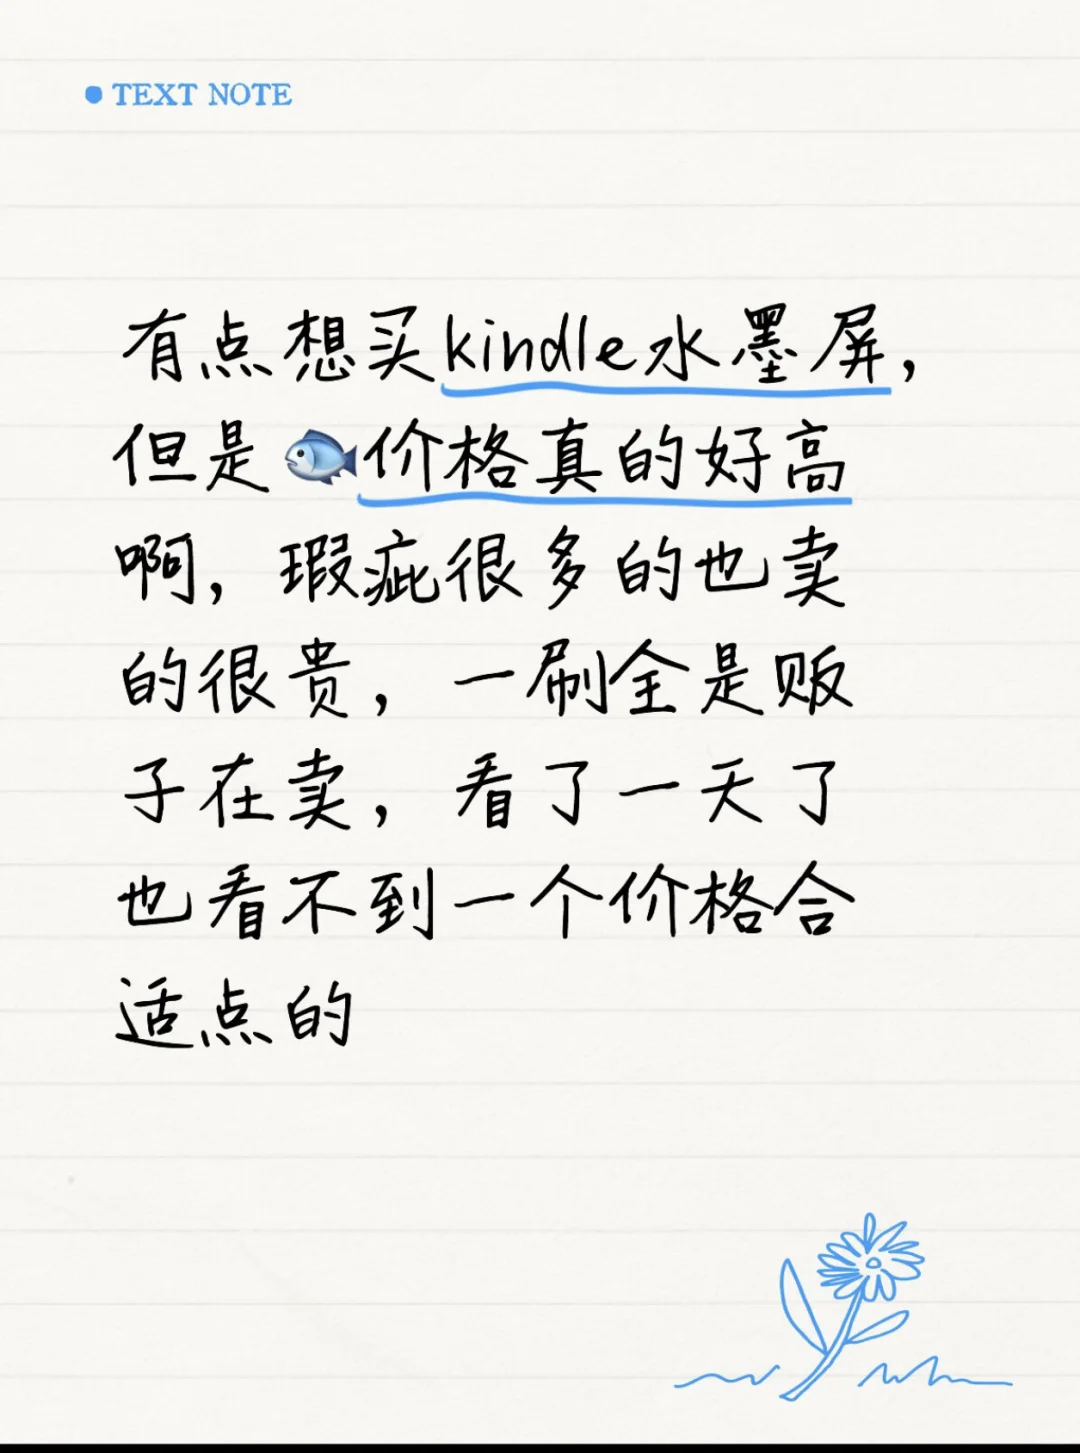 TEXT NOTE
有点想买kindle水墨屏，
但是🐟价格真的好高
啊，瑕疵很多的也卖
的很贵，一刷全是贩
子在卖，看了一天了
也看不到一个价格合
适点的